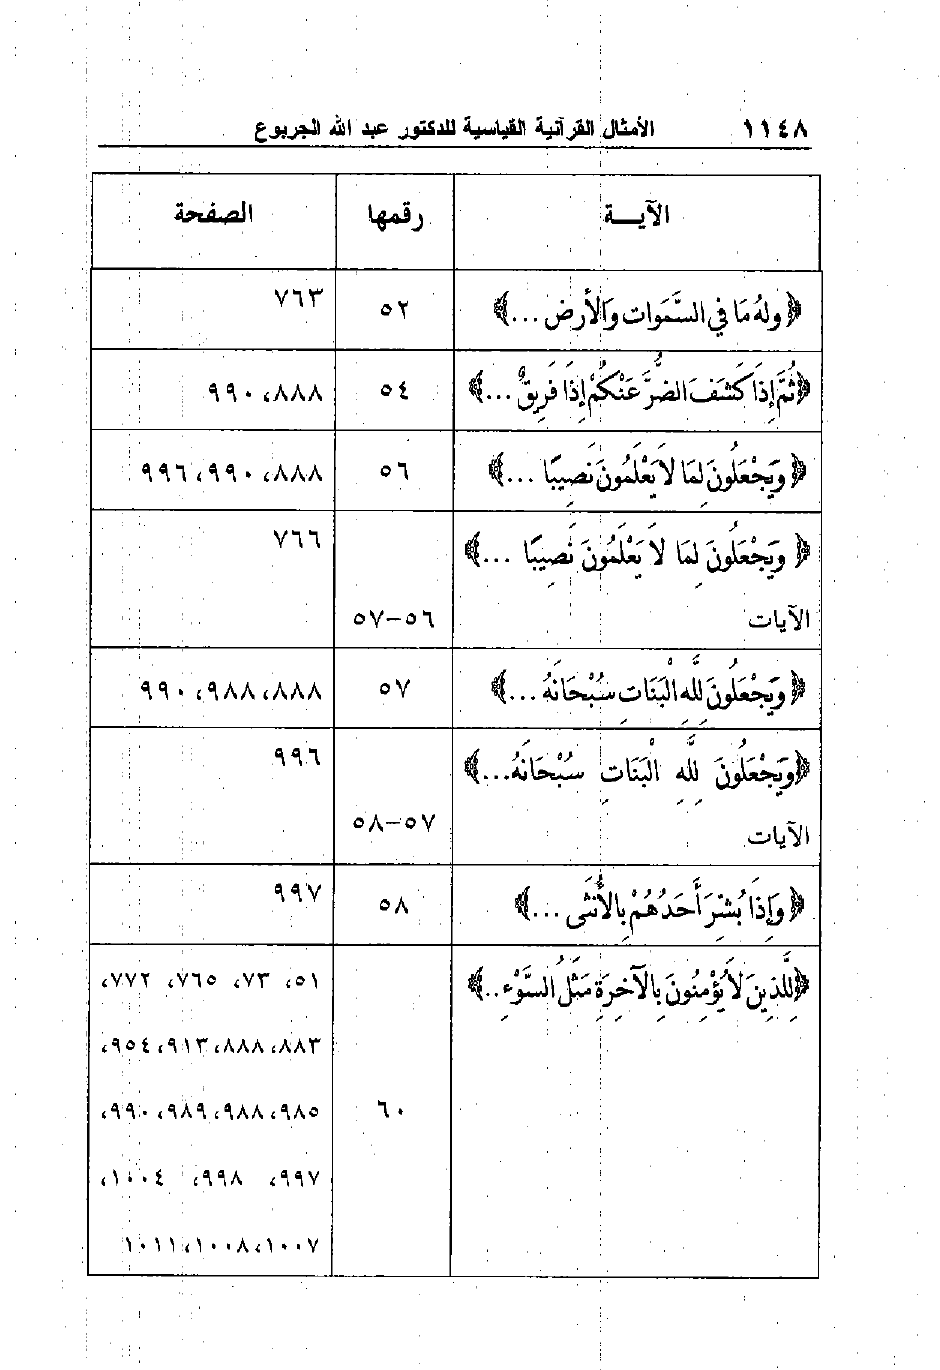 ١١٤٨ الأمثال القرآنية القياسية للدكتور عبد الله الجربوع
الآيــة رقمها الصفحة
﴿وله مَا في السَّمَوات وَالأَرض ...﴾ ٥٢ ٧٦٣
﴿ثُمَّ إِذَا كَشَفَ الضُّرَّ عَنْكُمْ إِذَا فَرِيقٌ ...﴾ ٥٤ ٨٨٨، ٩٩٠
﴿وَيَجْعَلُونَ لِمَا لاَ يَعْلَمُونَ نَصِيبًا ...﴾ ٥٦ ٨٨٨، ٩٩٠، ٩٩٦
﴿وَيَجْعَلُونَ لِمَا لاَ يَعْلَمُونَ نَصِيبًا ...﴾ ٧٦٦
الآيات ٥٦–٥٧
﴿وَيَجْعَلُونَ لِلَّهِ الْبَنَاتِ سُبْحَانَهُ ...﴾ ٥٧ ٨٨٨، ٩٨٨، ٩٩٠
﴿وَيَجْعَلُونَ لِلَّهِ الْبَنَاتِ سُبْحَانَهُ...﴾ ٩٩٦
الآيات ٥٧–٥٨
﴿وَإِذَا بُشِّرَ أَحَدُهُمْ بِالأُنْثَى ...﴾ ٥٨ ٩٩٧
﴿لِلَّذِينَ لاَ يُؤْمِنُونَ بِالآخِرَةِ مَثَلُ السَّوْءِ..﴾ ٥١، ٧٣، ٧٦٥، ٧٧٢،
٨٨٣، ٨٨٨، ٩١٣، ٩٥٤،
٦٠ ٩٨٥، ٩٨٨، ٩٨٩، ٩٩٠،
٩٩٧، ٩٩٨، ١٠٠٤،
١٠٠٧، ١٠٠٨، ١٠١١